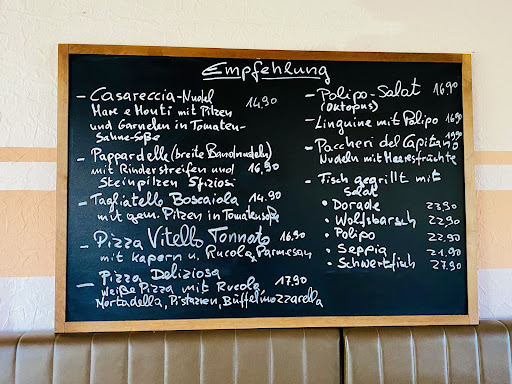 Empfehlung
- Casareccia-Nudel 14,90
Mare e Monti mit Pilzen
und Garnelen in Tomaten-
Sahne-Soße
- Pappardelle (breite Bandnudeln)
mit Rinderstreifen und 16,90
Steinpilzen Sfiziosi
- Tagliatello Boscaiola 14.90
mit gem. Pilzen in Tomatensoße
- Pizza Vitello Tonnato 16.90
mit Kapern u. Rucola, Parmesan
- Pizza Deliziosa
weiße Pizza mit Rucola, 17.90
Mortadella, Pistazien, Büffelmozzarella
- Polipo-Salat 16,90
(Oktopus)
- Linguine mit Polipo 16,90
- Paccheri del Capitano 19,90
Nudeln mit Meeresfrüchte
- Fisch gegrillt mit
Salat
• Dorade 23,90
• Wolfsbarsch 22,90
• Polipo 22,90
• Seppia 21,90
• Schwertfisch 27,90